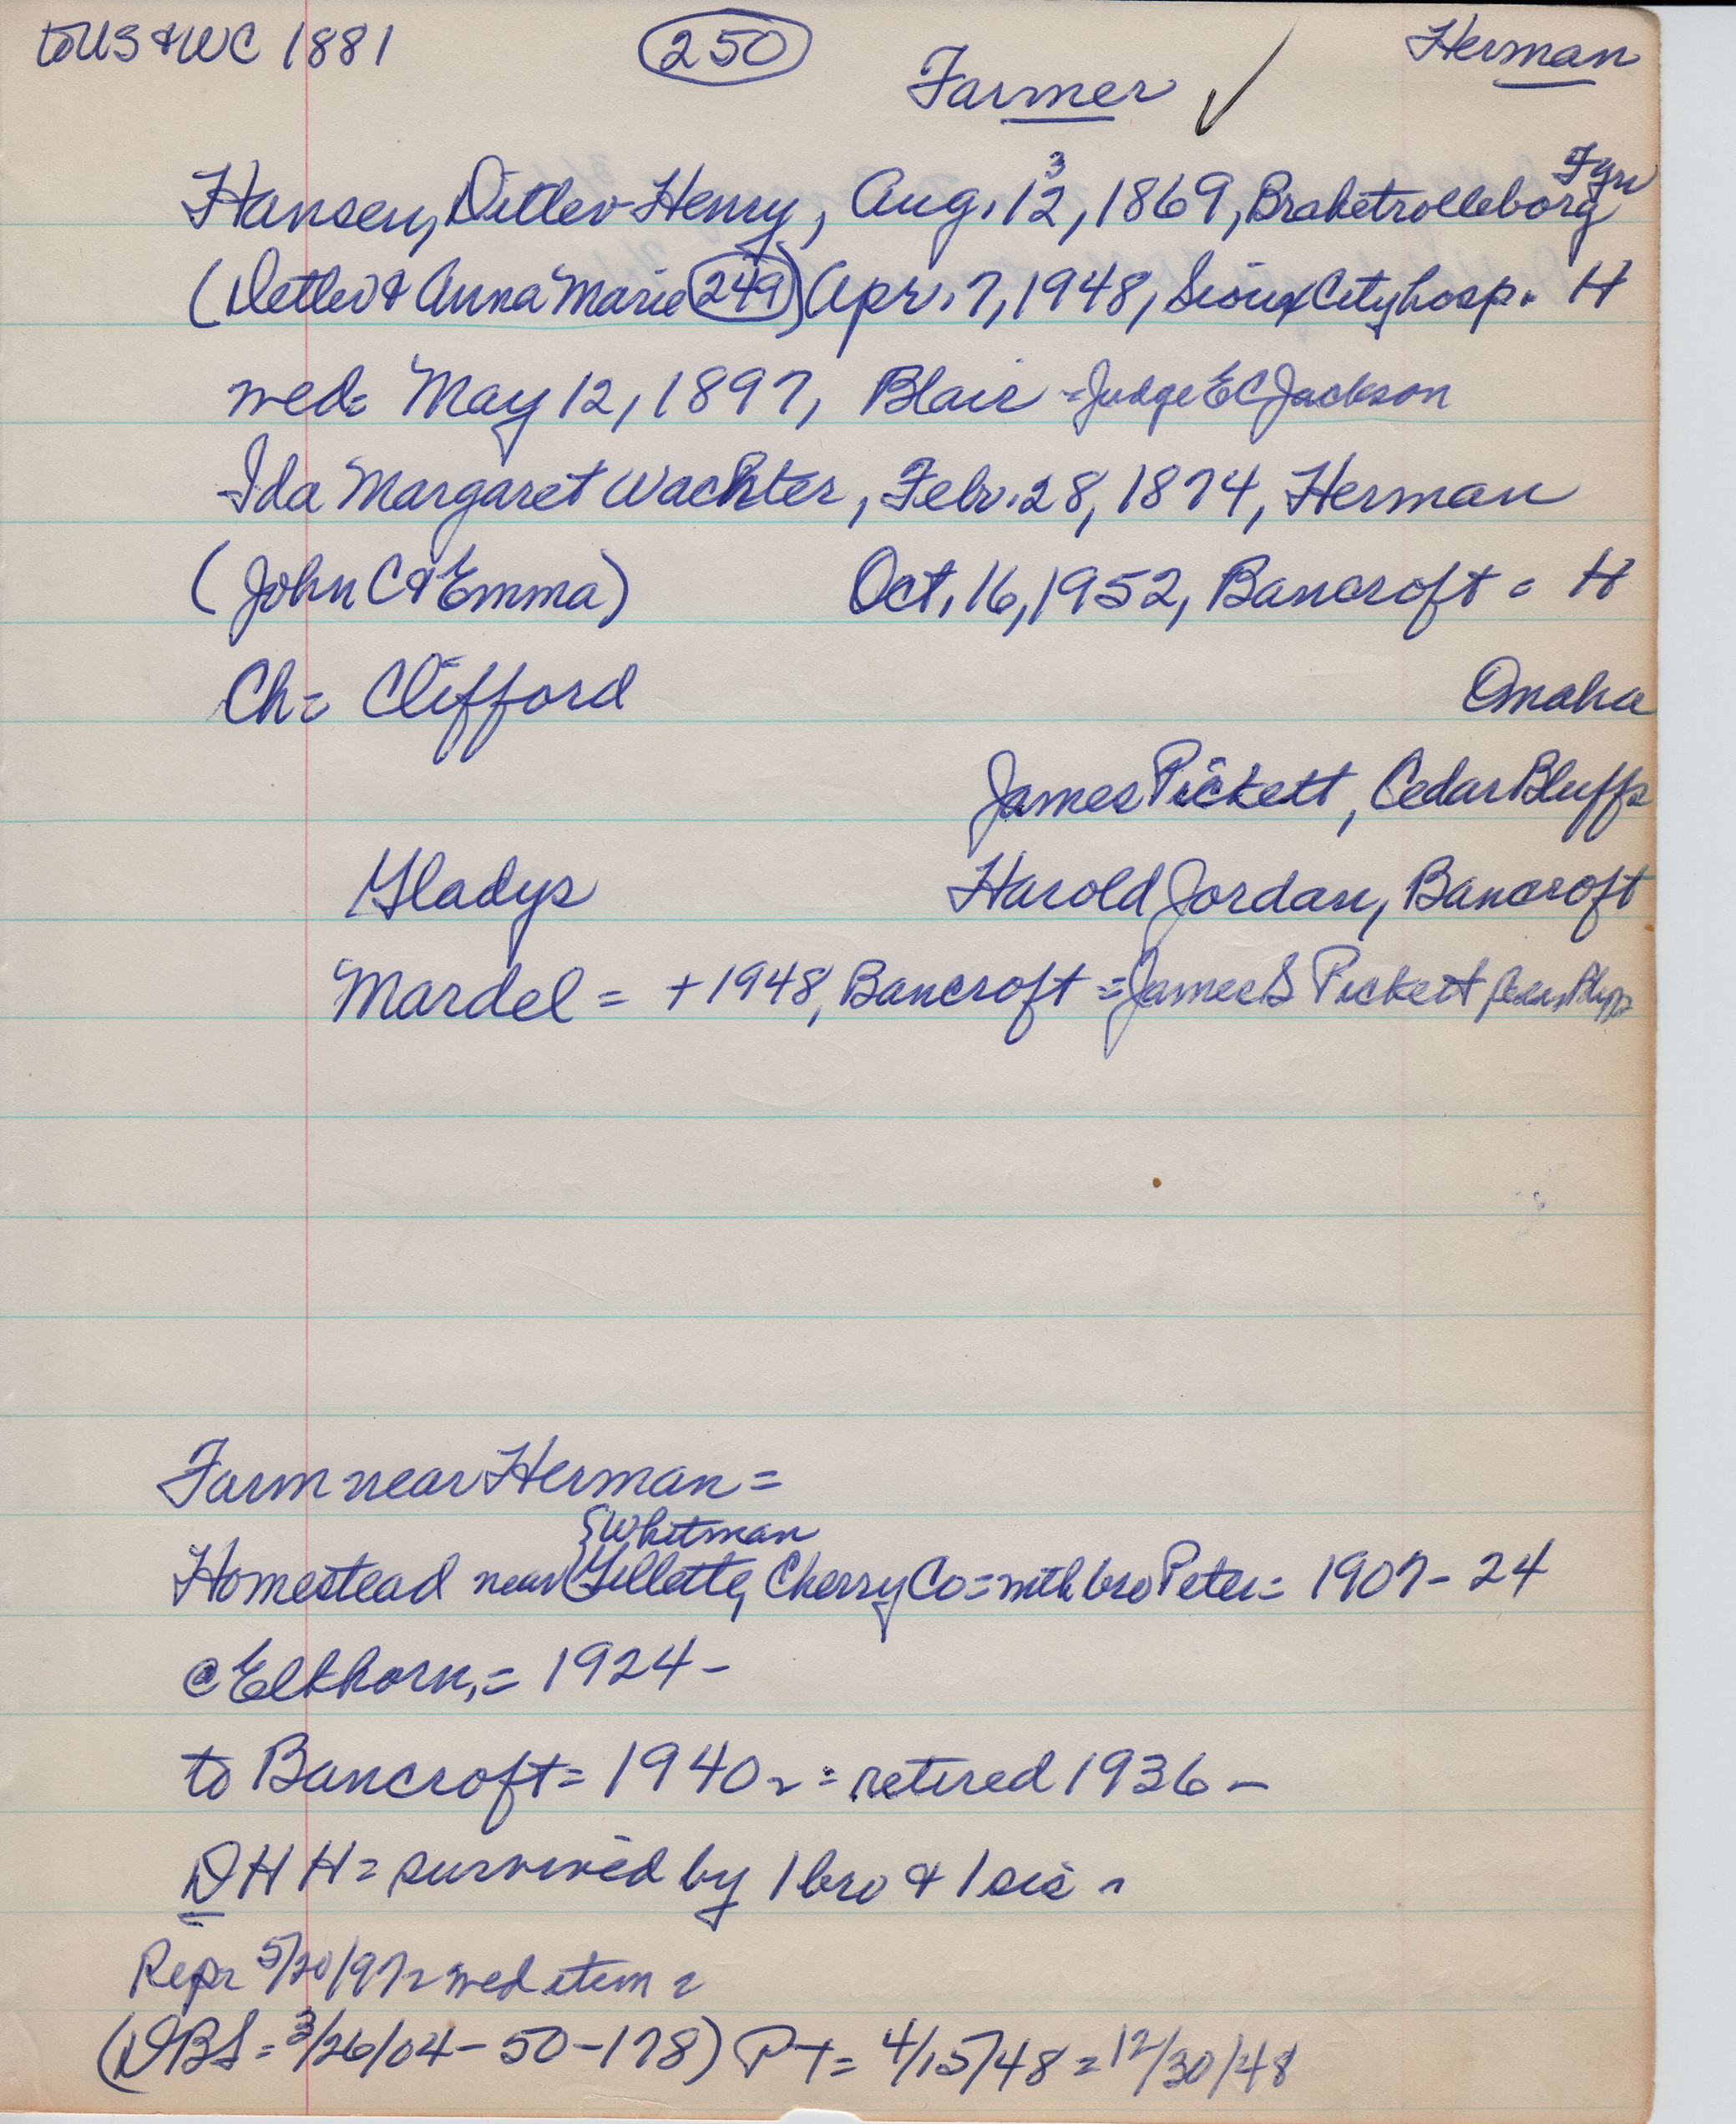 to US & WC 1881 (250) Herman
Farmer ✓
Fyn
Hansen, Ditlev Henry, Aug. 12, 1869, Braketrolleborg
3
(Detlev & Anna Marie (249)) Apr. 7, 1948, Sioux City hosp. H
wed= May 12, 1897, Blair = Judge E C Jackson
Ida Margaret Wachter, Febr. 28, 1874, Herman
(John C & Emma) Oct. 16, 1952, Bancroft = H
Ch= Clifford Omaha
James Pickett, Cedar Bluffs
Gladys Harold Jordan, Bancroft
Mardel = + 1948, Bancroft = James S Pickett Cedar Bluffs
Farm near Herman =
{Whitman
Homestead near Gillette, Cherry Co = with bro Peter = 1907 - 24
@ Elkhorn, = 1924 -
to Bancroft = 1940 = retired 1936 -
DHH = survived by 1 bro & 1 sis
Repr 5/20/97 wed item
(DBS = 3/26/04 - 50 - 178) PT = 4/15/48 = 12/30/48